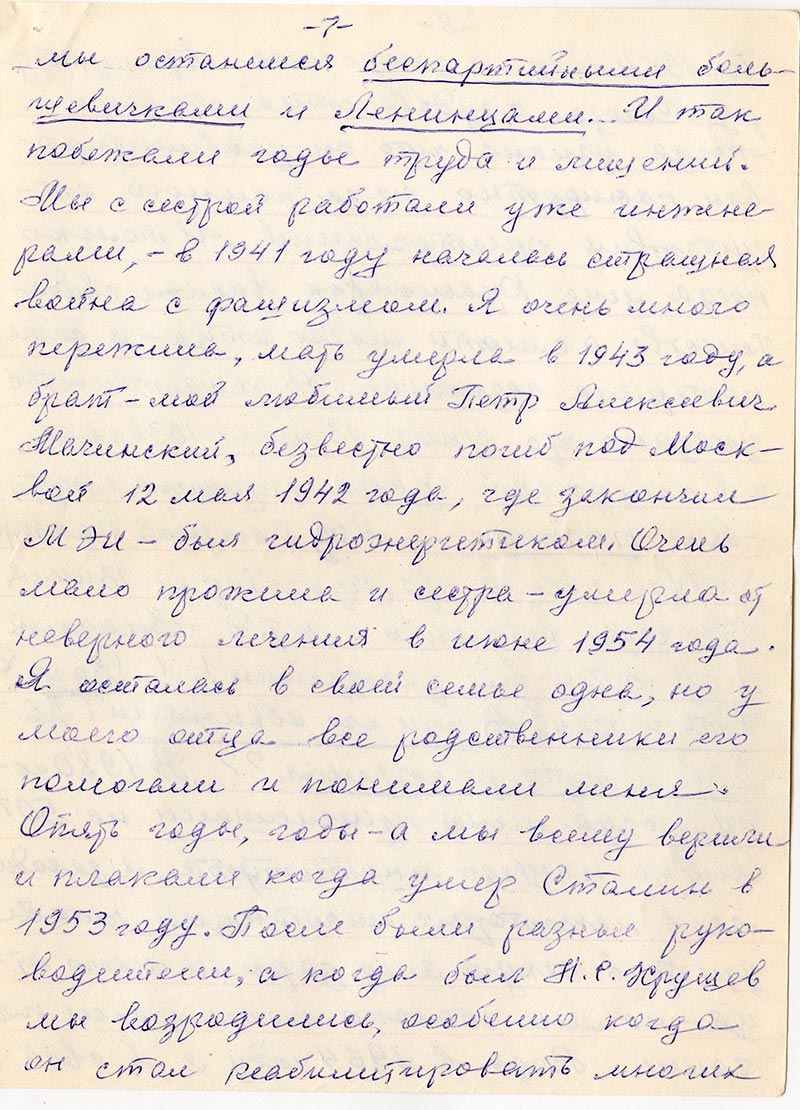 -7-
мы останемся беспартийными боль-
шевичками и Ленинцами. И так
побежали годы труда и лишений.
Мы с сестрой работали уже инжене-
рами, - в 1941 году началась страшная
война с фашизмом. Я очень много
пережила, мать умерла в 1943 году, а
брат - мой любимый Петр Алексеевич
Мачинский, безвестно погиб под Моск-
вой 12 мая 1942 года, где закончил
МЭИ - был гидроэнергетиком. Очень
мало прожила и сестра - умерла от
неверного лечения в июне 1954 года.
Я осталась в своей семье одна, но у
моего отца все родственники его
помогали и понимали меня.
Опять годы, годы - а мы всему верили
и плакали когда умер Сталин в
1953 году. После были разные руко-
водители, а когда был Н.С. Хрущев
мы возродились, особенно когда
он стал реабилитировать многих